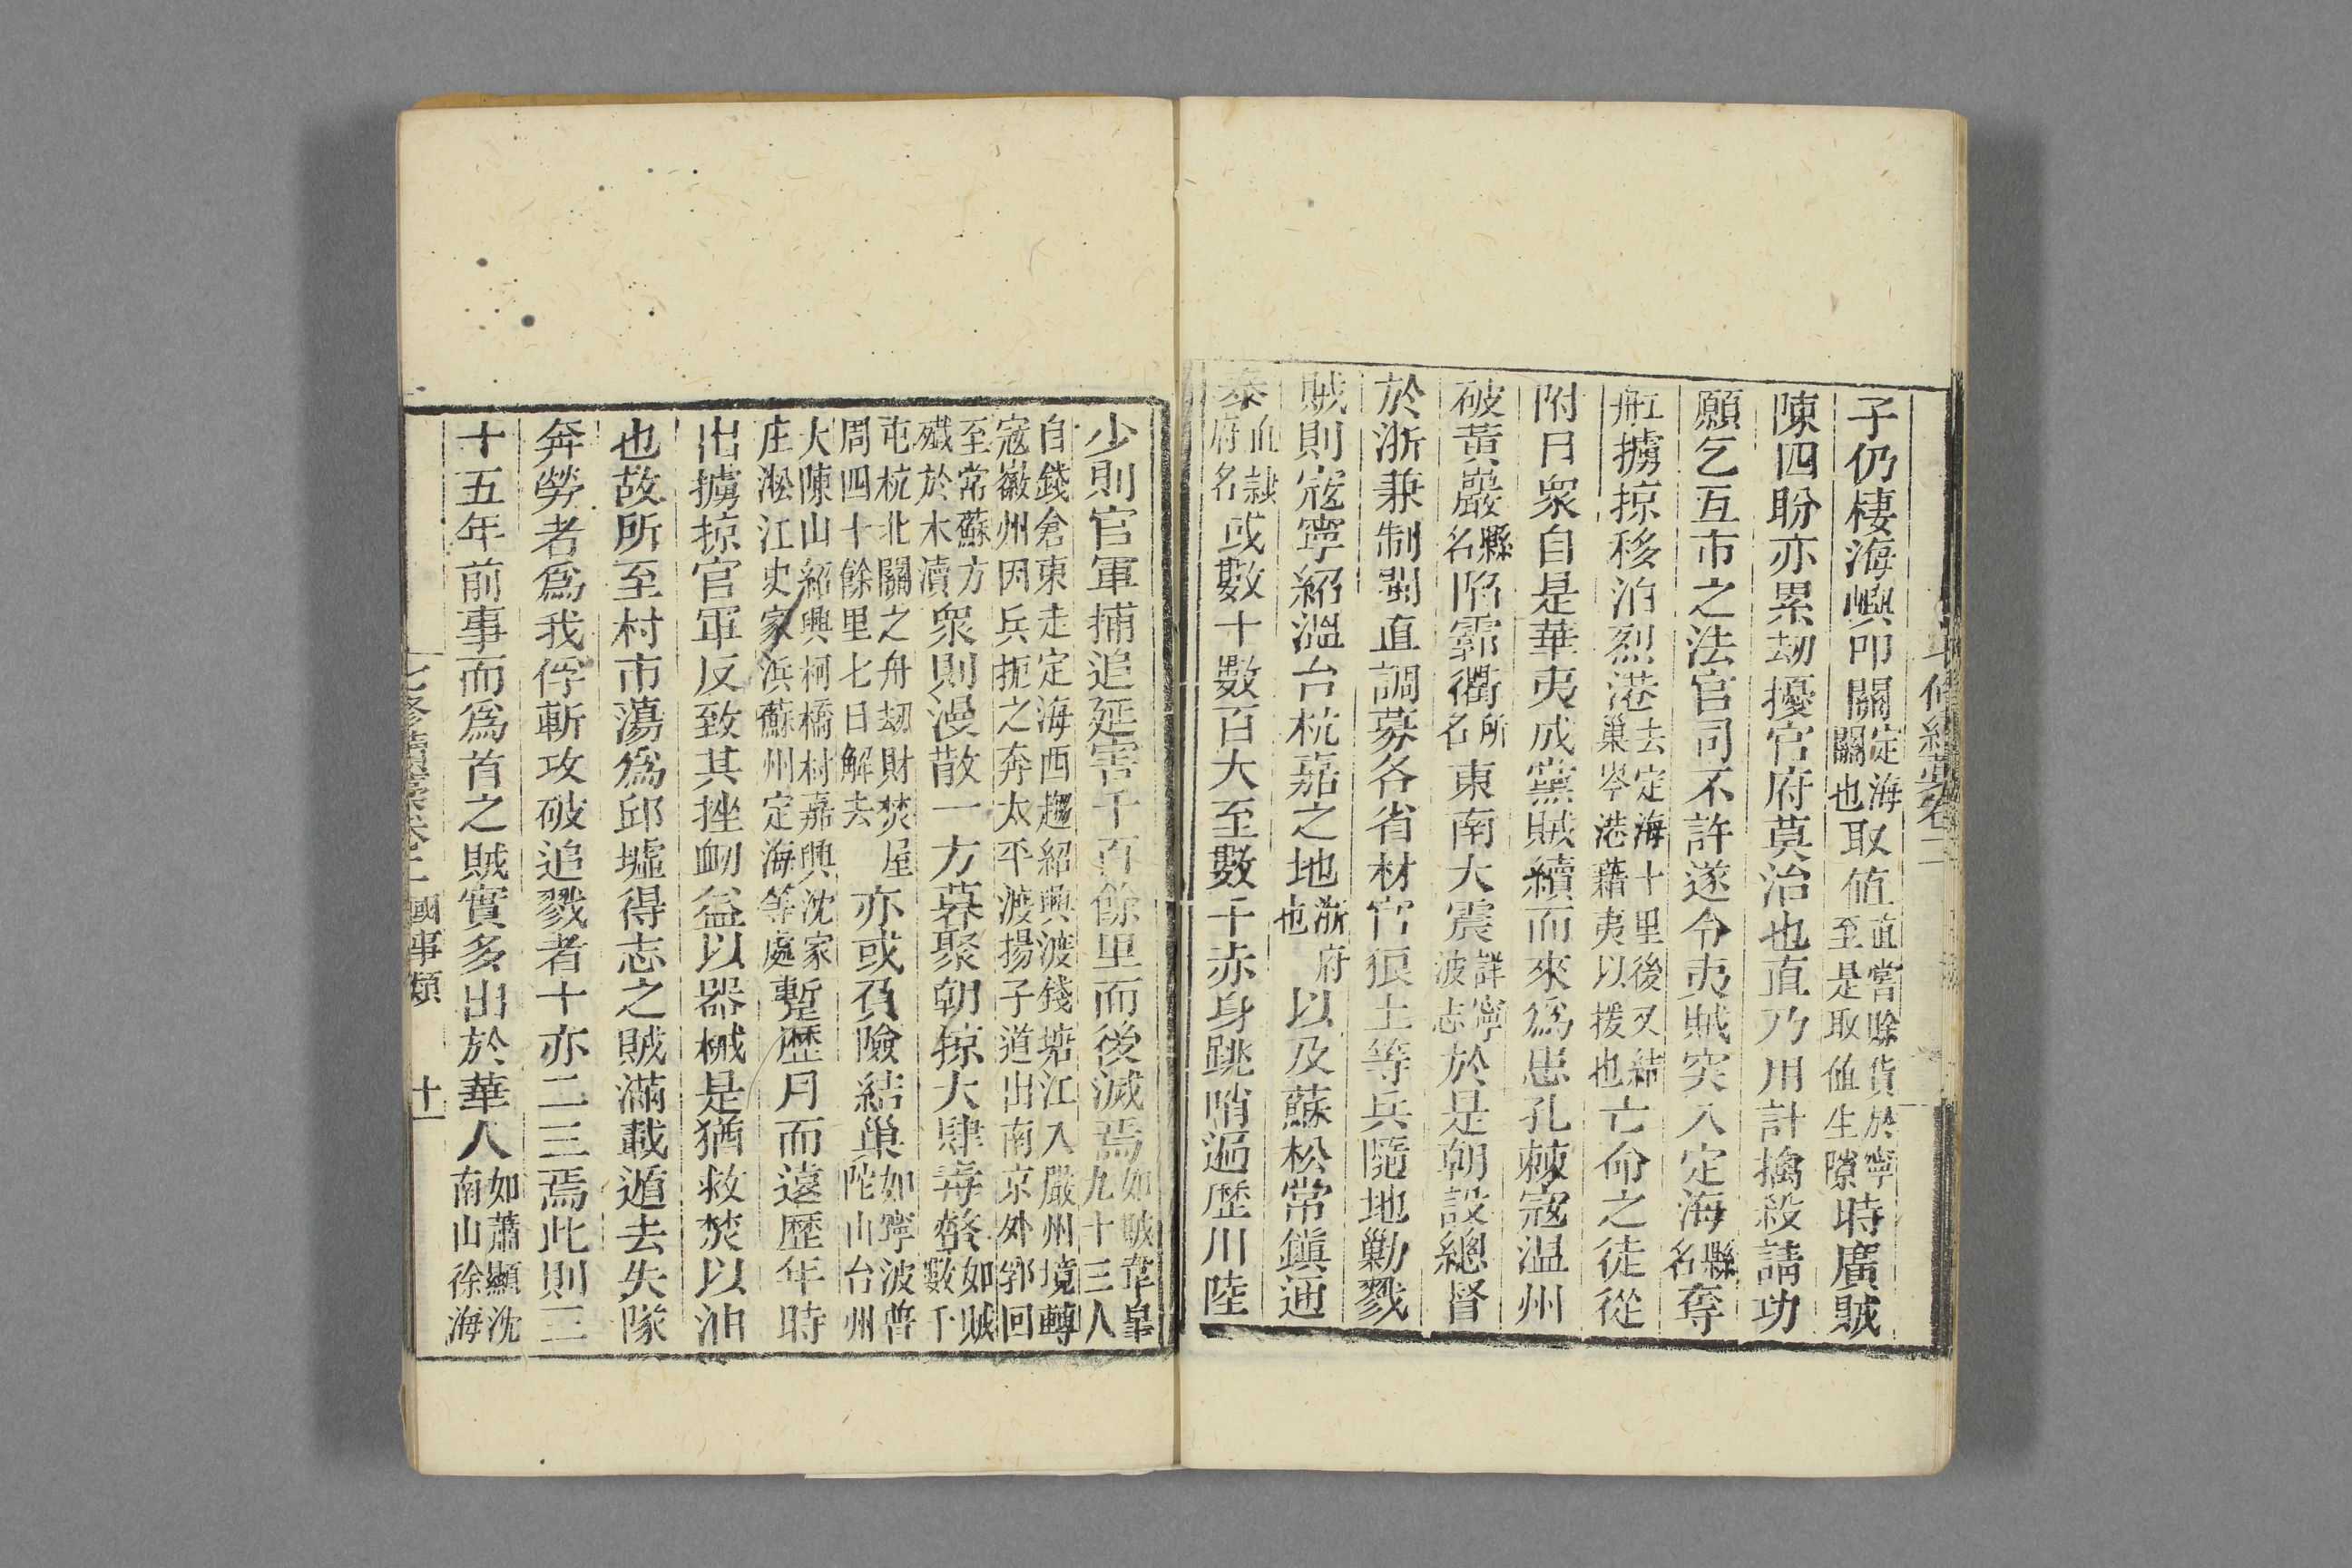 子仍棲海嶼叩關定海關也取值直嘗賖貨於寧至是取値生隙時廣賊
陳四盼亦累刼擾官府莫治也直乃用計擒殺請功
願乞互市之法官司不許遂令夷賊突入定海縣名奪
舡擄掠移泊烈港去定海十里後又結巢岑港藉夷以援也亡命之徒從
附日衆自是華夷成黨賊續而來爲患孔棘寇温州
破黃巖縣名陷霩衢所名東南大震詳寧波志於是朝設總督
於浙兼制閩直調募各省材官狼土等兵隨地勦戮
賊則寇寧紹溫台杭嘉之地浙府也以及蘇松常鎮通
泰直隷府名或數十數百大至數千赤身跳哨遍歷川陸
少則官軍捕追延害千百餘里而後滅焉如賊韋皐九十三人
自錢倉東走定海西趨紹興渡錢塘江入嚴州境轉寇徽州因兵扼之奔太平渡揚子道出南京外郭回
至常蘇方殲於木瀆衆則漫散一方暮聚朝掠大肆毒螫如賊數千
屯杭北關之舟刼財焚屋周四十餘里七日解去亦或負險結巢如寧波普陀山台州
大陳山紹興柯橋村嘉興沈家庄淞江史家浜蘇州定海等處暫歷月而遠歷年時
出擄掠官軍反致其挫衂益以器械是猶救焚以油
也故所至村市蕩爲邱墟得志之賊滿載遁去失隊
奔勞者爲我俘斬攻破追戮者十亦二三焉此則三
十五年前事而爲首之賊實多出於華人如蕭顯沈南山徐海
七修續稾卷二 國事類 十一